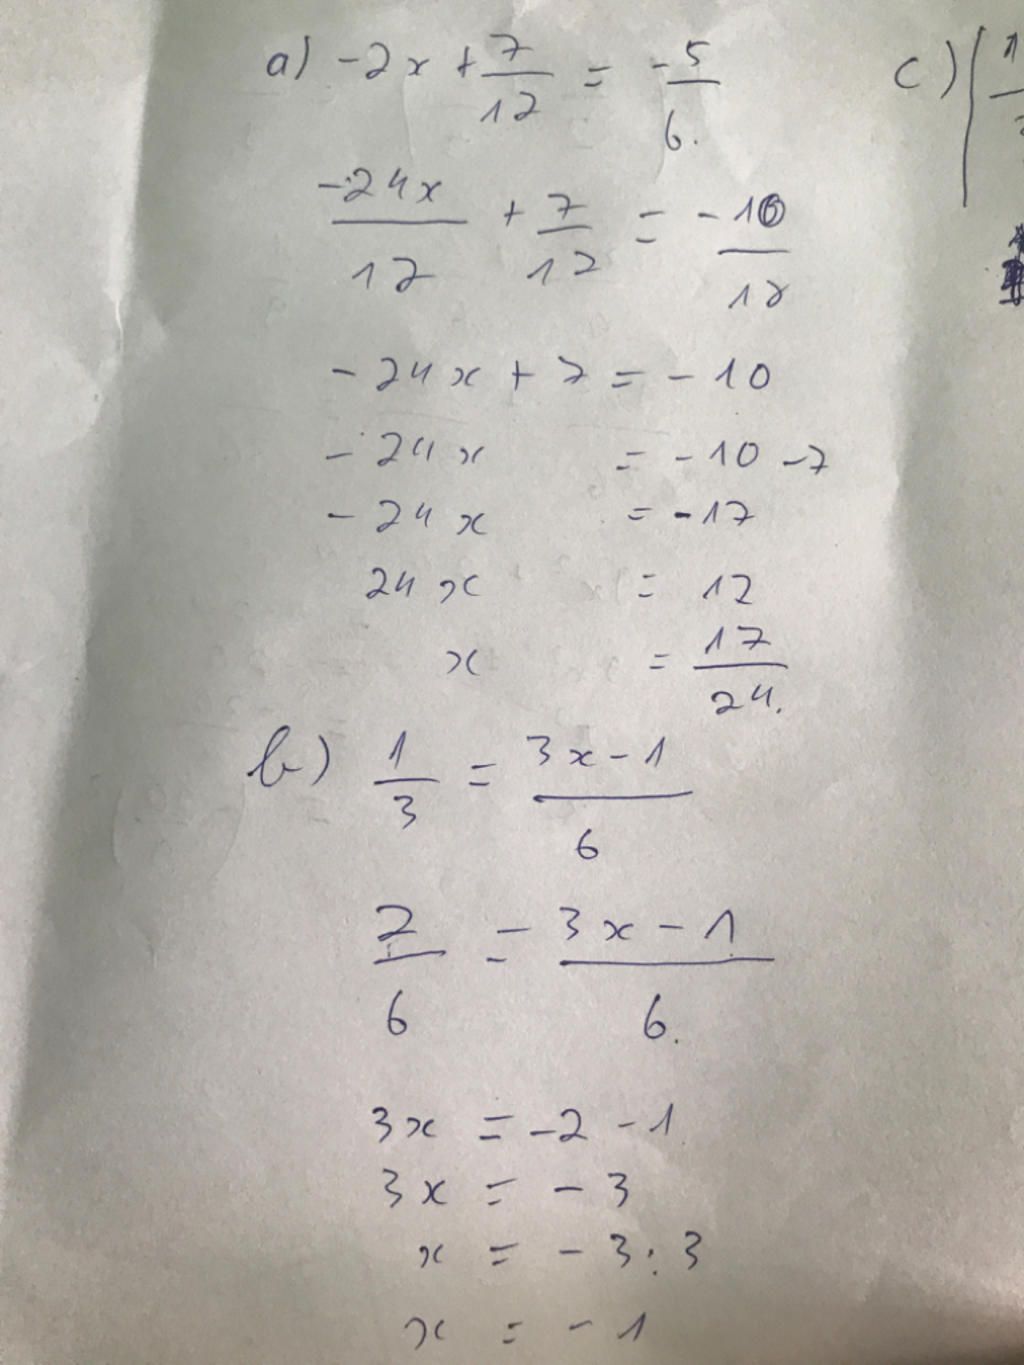 a) -2x + 7/12 = -5/6.
-24x/12 + 7/12 = -10/12
-24x + 7 = -10
-24x = -10 -7
-24x = -17
24x = 17
x = 17/24.
b) 1/3 = 3x-1/6
2/6 = 3x-1/6.
3x = -2 -1
3x = -3
x = -3:3
x = -1
c)